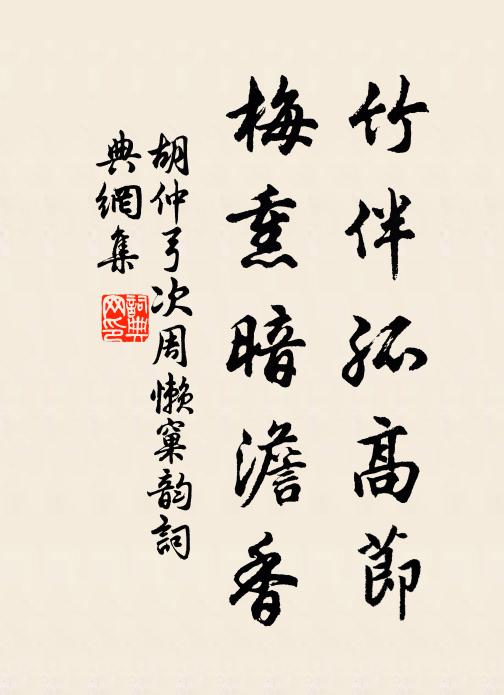 竹伴孤高節
梅熏暗澹香
胡仲弓次周懶窠韵詞
典網集
詞典网印